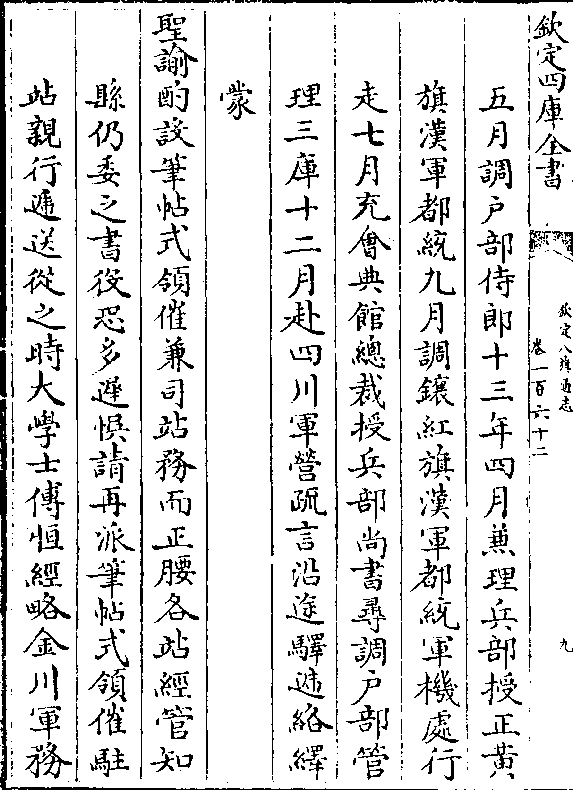 欽定四庫全書
欽定八旗通志
卷一百六十二
九
五月調户部侍郎十三年四月兼理兵部授正黃
旗漢軍都統九月調鑲紅旗漢軍都統軍機處行
走七月充會典館總裁授兵部尚書尋調户部管
理三庫十二月赴四川軍營疏言沿途驛遞絡繹
蒙
聖諭酌設筆帖式領催兼司站務而正腰各站經管知
縣仍委之書役恐多遲悞請再派筆帖式領催駐
站親行遞送從之時大學士傅恒經略金川軍務